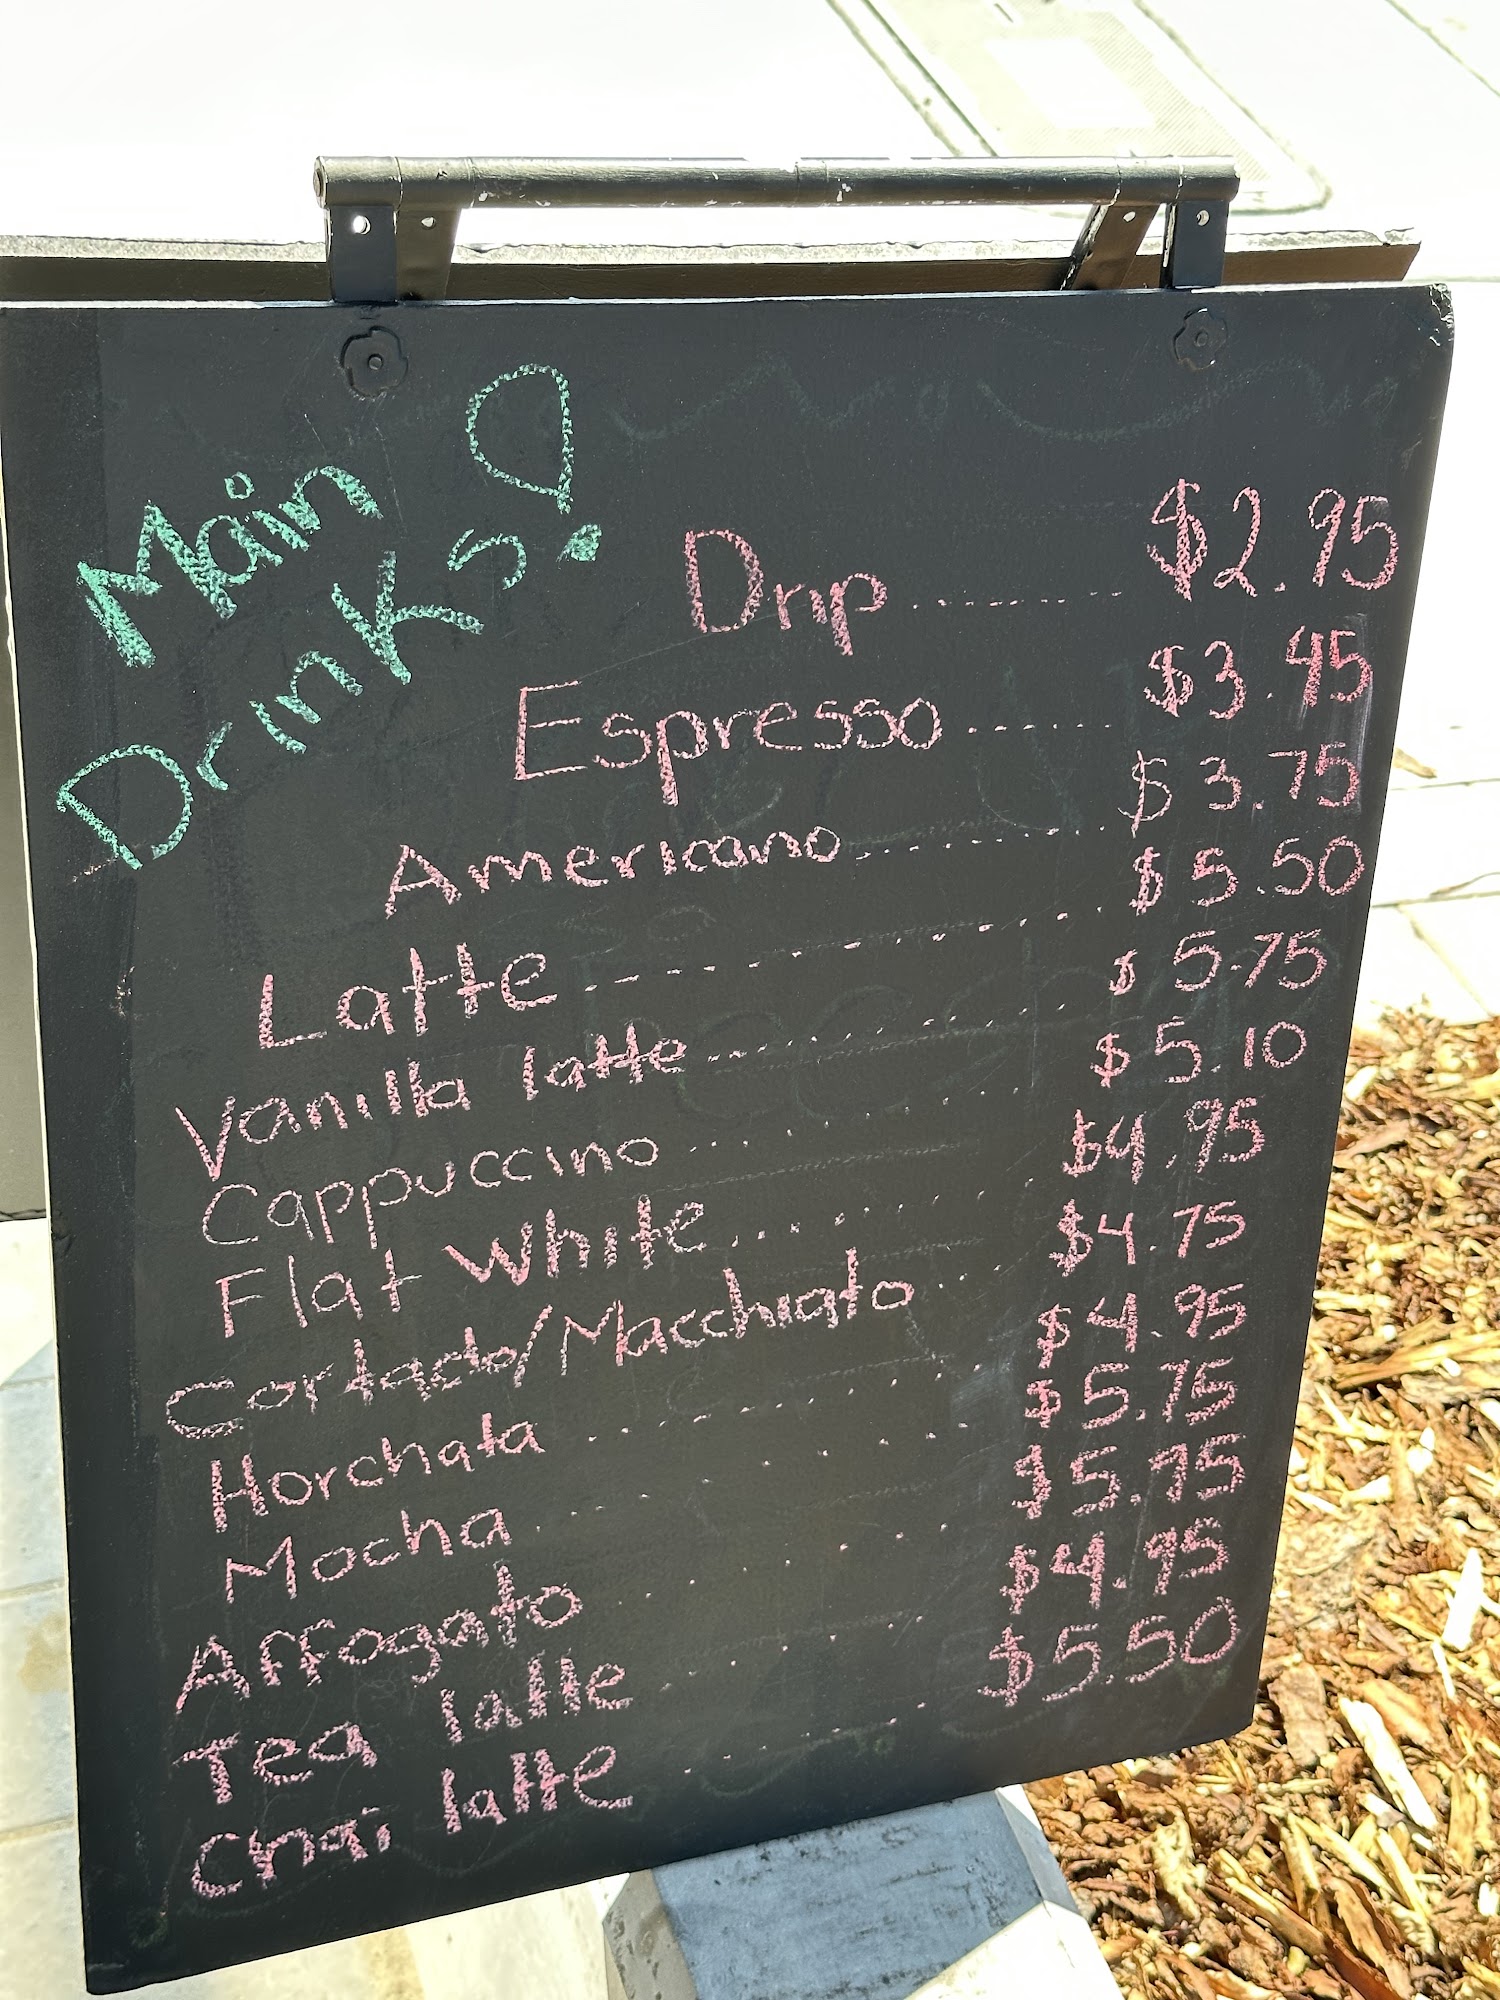 Main
Drinks!
Drip ........ $2.95
Espresso ...... $3.45
Americano ........ $3.75
Latte ............ $5.50
Vanilla latte ............ $5.75
Cappuccino ............ $5.10
Flat White ........ $4.95
Cortado/Macchiato .... $4.75
Horchata ............ $4.95
Mocha ............ $5.75
Affogato ........ $5.75
Tea latte ........ $4.95
Chai latte ........ $5.50